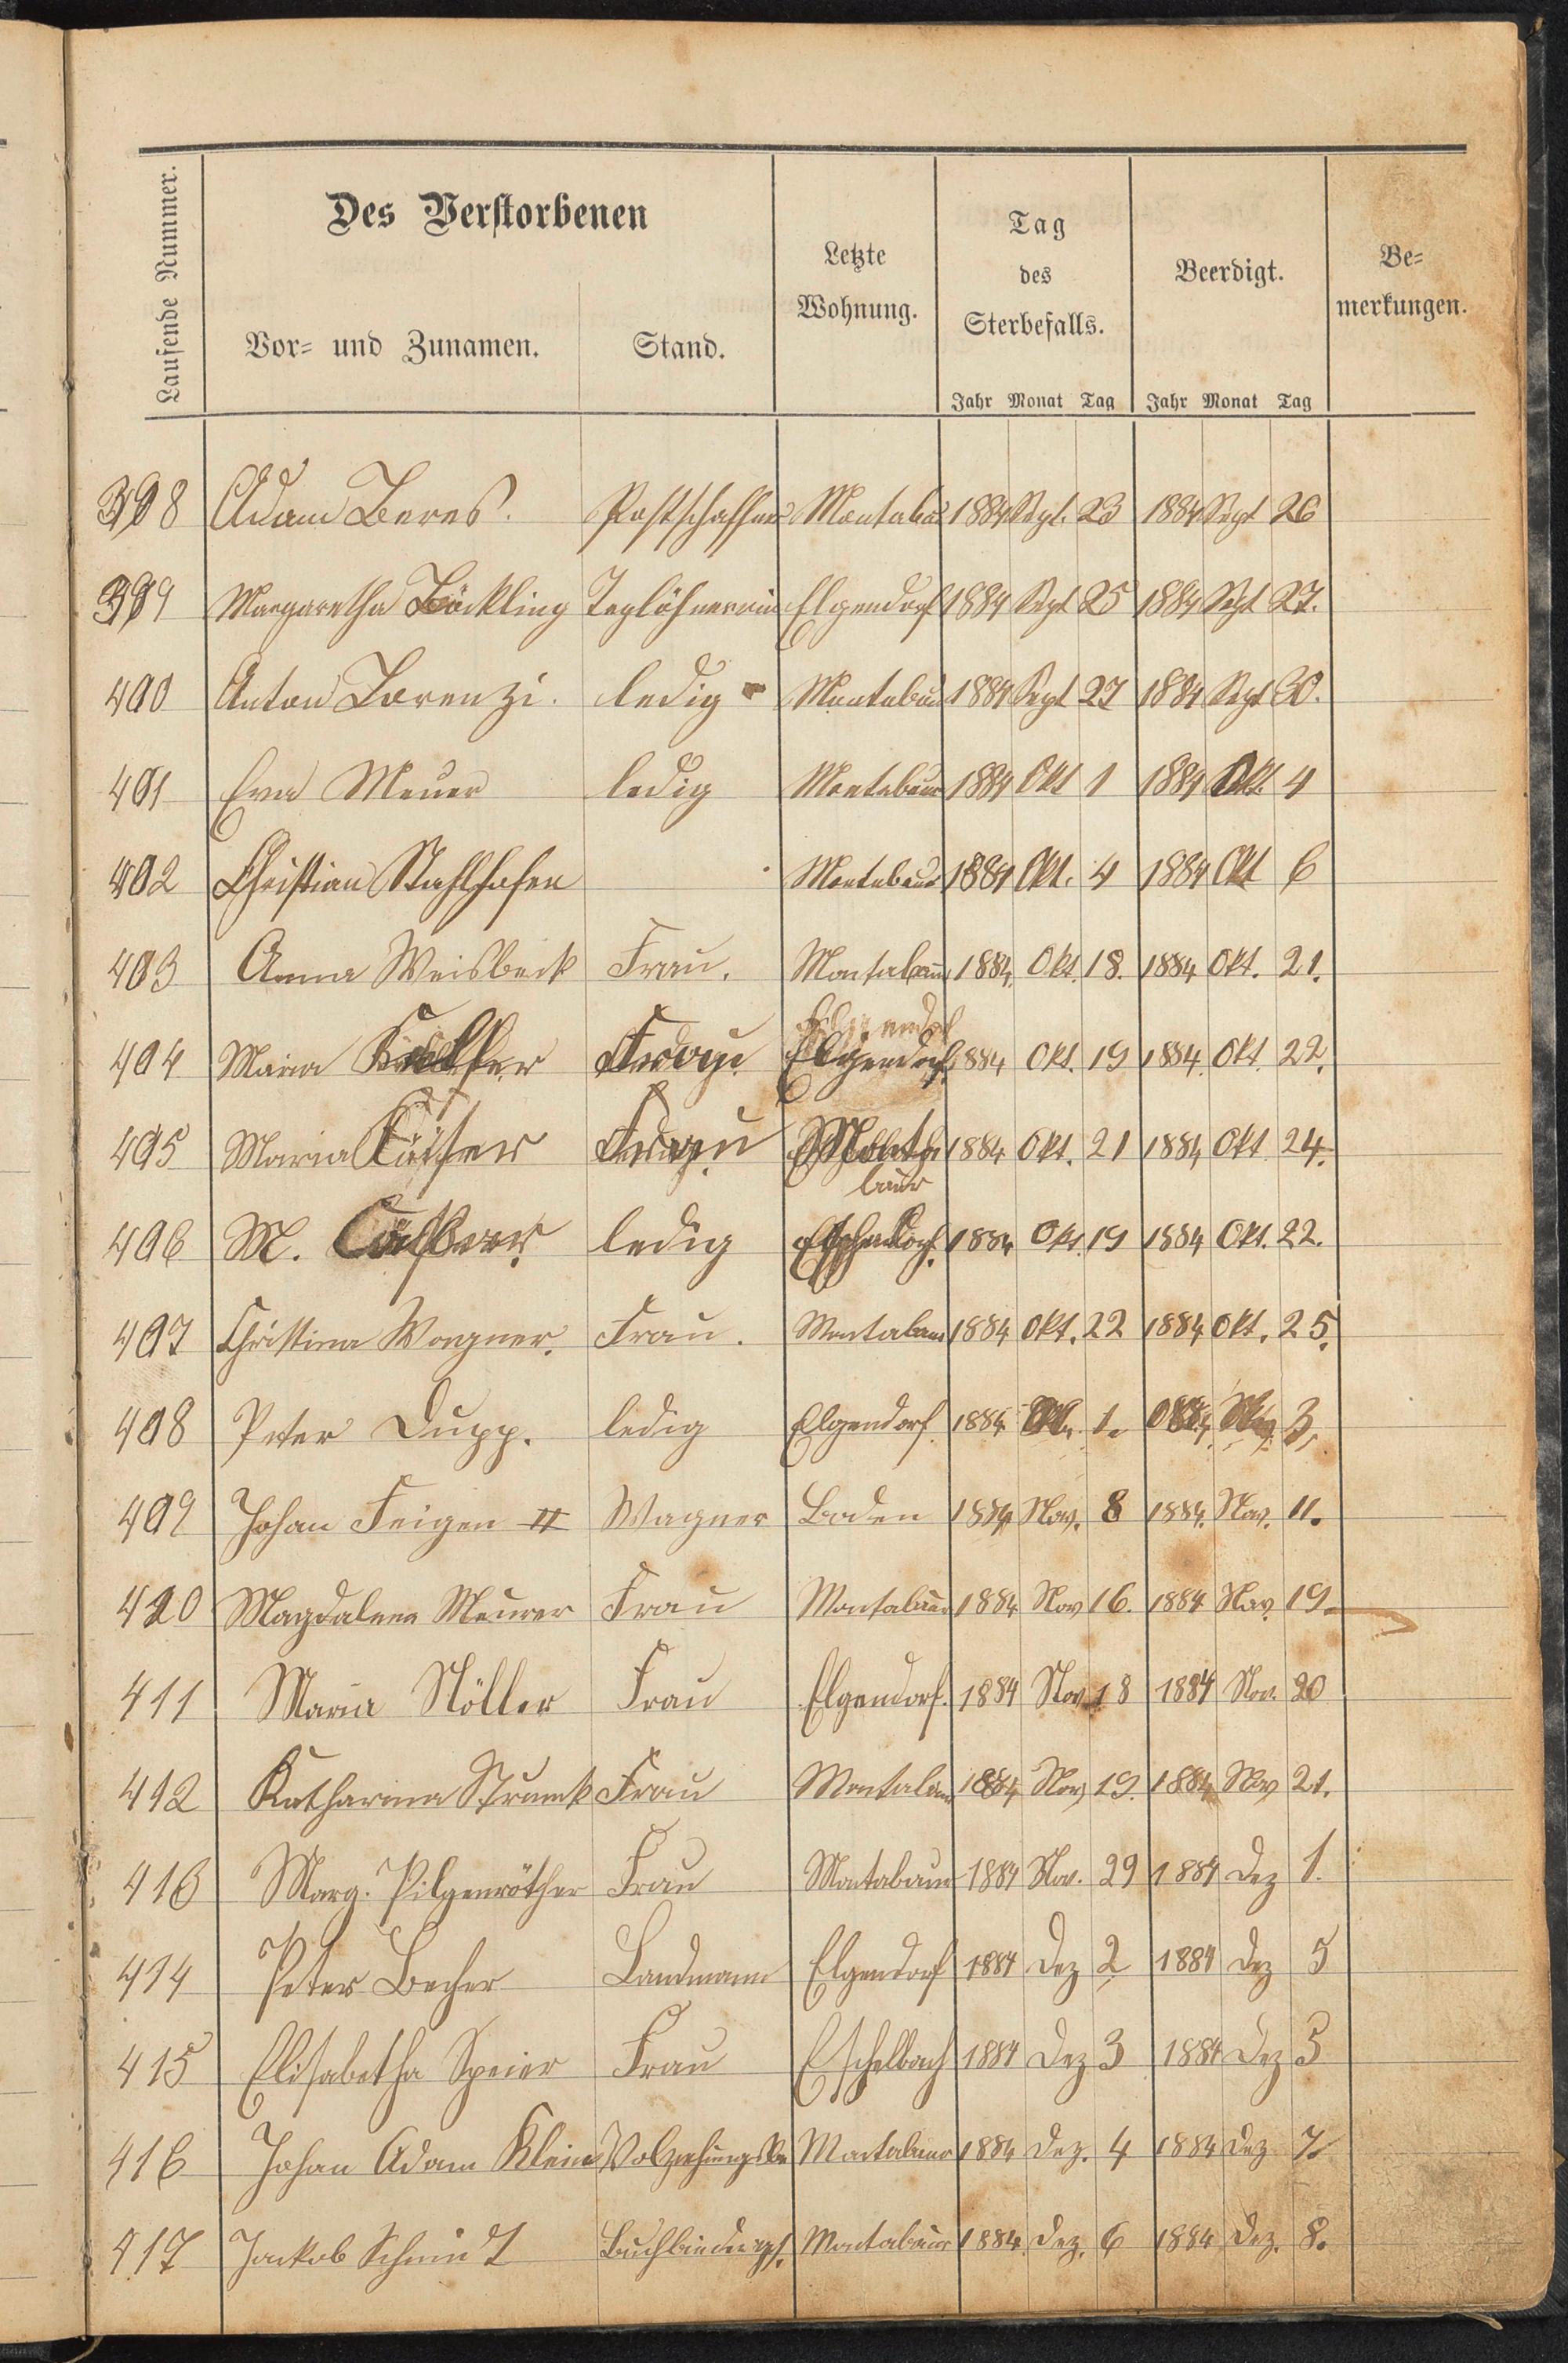 Laufende Nummer.
Des Verstorbenen
Vor- und Zunamen.
Stand.
Letzte
Wohnung.
Tag
des
Sterbefalls.
Beerdigt.
Be-
merkungen.
Jahr Monat Tag Jahr Monat Tag
398 Adam Beres. Postschaffner Montabaur 1884 Sept. 23 1884 Sept 26
399 Margaretha Böckling Taglöhnerin Elgendorf 1884 Sept 25 1884 Sept 27.
400 Anton Lorenzi. ledig Montabaur 1884 Sept 27 1884 Sept 30.
401 Eva Meuer ledig Montabaur 1884 Okt 1 1884 Okt. 4
402 Christian Stahlhofen Montabaur 1884 Okt. 4 1884 Okt 6
403 Anna Weisbeck Frau. Montabaur 1884. Okt. 18. 1884 Okt. 21.
404 Maria Frau Elgendorf 1884 Okt. 19 1884. Okt. 22.
405 Maria Frau Montabaur 1884 Okt. 21 1884 Okt 24.
406 M. ledig 1884 Okt. 19 1884 Okt. 22.
407 Christina Wagner. Frau. Montabaur 1884 Okt. 22 1884 Okt. 25.
408 Peter Dupp. ledig Elgendorf 1884 1. Nov 3.
409 Johan Feigen II Wagner Boden 1884 Nov. 8 1884. Nov. 11.
410 Magdalena Meurer Frau Montabaur 1884 Nov 16. 1884 Nov. 19.
411 Maria Nöller Frau Elgendorf. 1884 Nov 18 1884 Nov. 20
412 Katharina Strunk Frau Montabaur 1884 Nov 19. 1884 Nov 21.
413 Marg. Pilgenröther Frau Montabaur 1884 Nov. 29 1884 Dez 1.
414 Peter Becher Landmann Elgendorf 1884 Dez 2 1884 Dez 5
415 Elisabetha Speier Frau Eschelbach 1884 Dez 3 1884 Dez 5
416 Johan Adam Klein Montabaur 1884 Dez. 4 1884 Dez 7
417 Jackob Schmidt Montabaur 1884 Dez. 6 1884 Dez. 8.